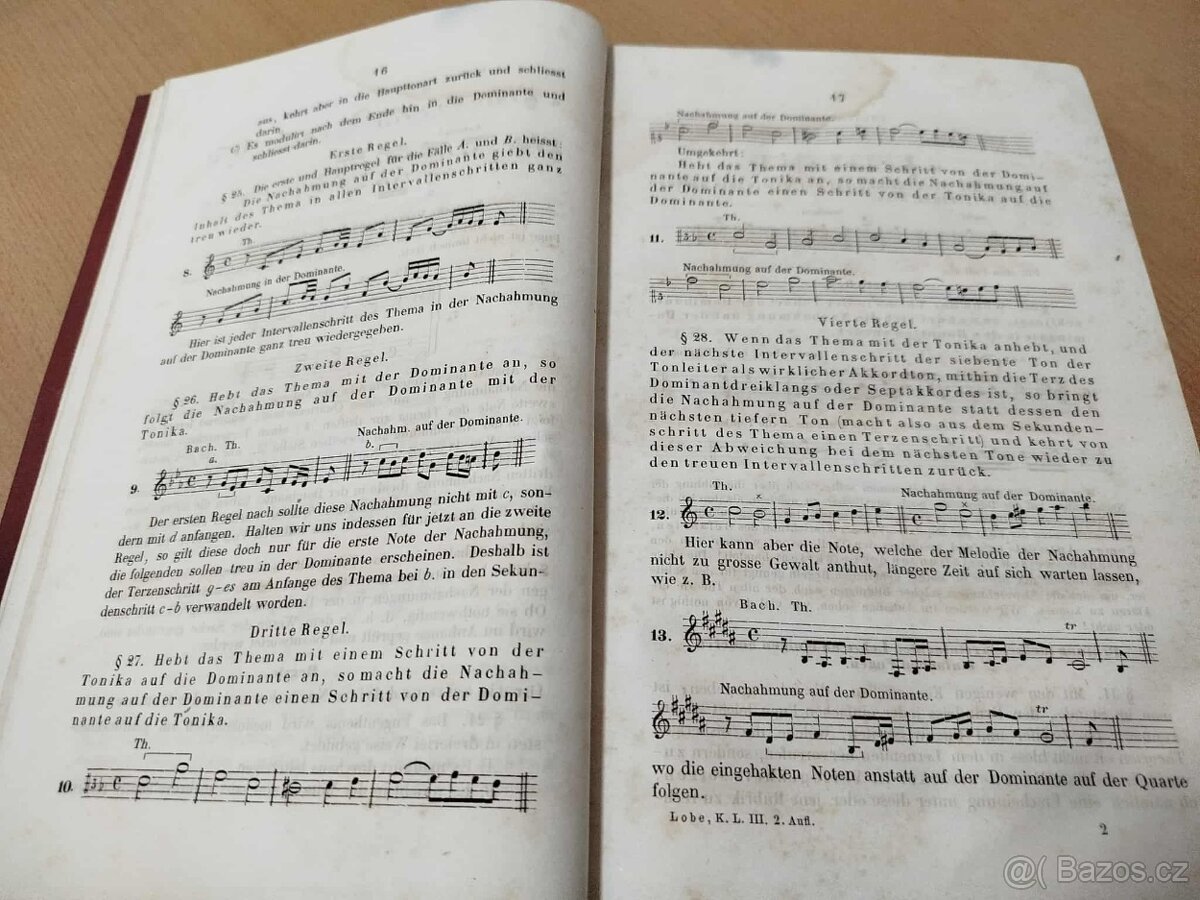 16
aus, kehrt aber in die Haupttonart zurück und schliesst
darin.
C) Es modulirt nach dem Ende hin in die Dominante und
schliesst darin.
Erste Regel.
§ 25. Die erste und Hauptregel für die Fälle A. und B. heisst:
Die Nachahmung auf der Dominante giebt den
Inhalt des Thema in allen Intervallenschritten ganz
treu wieder.
Th.
8.
Nachahmung in der Dominante.
Hier ist jeder Intervallenschritt des Thema in der Nachahmung
auf der Dominante ganz treu wiedergegeben.
Zweite Regel.
§ 26. Hebt das Thema mit der Dominante an, so
folgt die Nachahmung auf der Dominante mit der
Tonika.
Bach. Th. Nachahm. auf der Dominante.
a. b.
9.
Der ersten Regel nach sollte diese Nachahmung nicht mit c, son-
dern mit d anfangen. Halten wir uns indessen für jetzt an die zweite
Regel, so gilt diese doch nur für die erste Note der Nachahmung,
die folgenden sollen treu in der Dominante erscheinen. Deshalb ist
der Terzenschritt g-es am Anfange des Thema bei b. in den Sekun-
denschritt c-b verwandelt worden.
Dritte Regel.
§ 27. Hebt das Thema mit einem Schritt von der
Tonika auf die Dominante an, so macht die Nachah-
mung auf der Dominante einen Schritt von der Domi-
nante auf die Tonika.
Th.
10.
17
Nachahmung auf der Dominante.
Umgekehrt:
Hebt das Thema mit einem Schritt von der Domi-
nante auf die Tonika an, so macht die Nachahmung auf
der Dominante einen Schritt von der Tonika auf die
Dominante.
Th.
11.
Nachahmung auf der Dominante.
Vierte Regel.
§ 28. Wenn das Thema mit der Tonika anhebt, und
der nächste Intervallenschritt der siebente Ton der
Tonleiter als wirklicher Akkordton, mithin die Terz des
Dominantdreiklangs oder Septakkordes ist, so bringt
die Nachahmung auf der Dominante statt dessen den
nächsten tiefern Ton (macht also aus dem Sekunden-
schritt des Thema einen Terzenschritt) und kehrt von
dieser Abweichung bei dem nächsten Tone wieder zu
den treuen Intervallenschritten zurück.
Th. x Nachahmung auf der Dominante.
x
12.
Hier kann aber die Note, welche der Melodie der Nachahmung
nicht zu grosse Gewalt anthut, längere Zeit auf sich warten lassen,
wie z. B.
Bach. Th.
tr
13.
Nachahmung auf der Dominante.
tr
wo die eingehakten Noten anstatt auf der Dominante auf der Quarte
folgen.
Lobe, K. L. III. 2. Aufl.
2
@( Bazos.cz